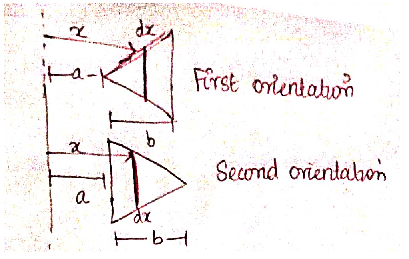 x dx
a
First orientation
b
x
Second orientation
a
dx
b